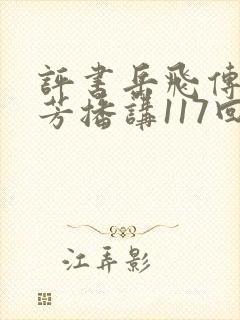 評書岳飛傳
芳播講117回
江弄影